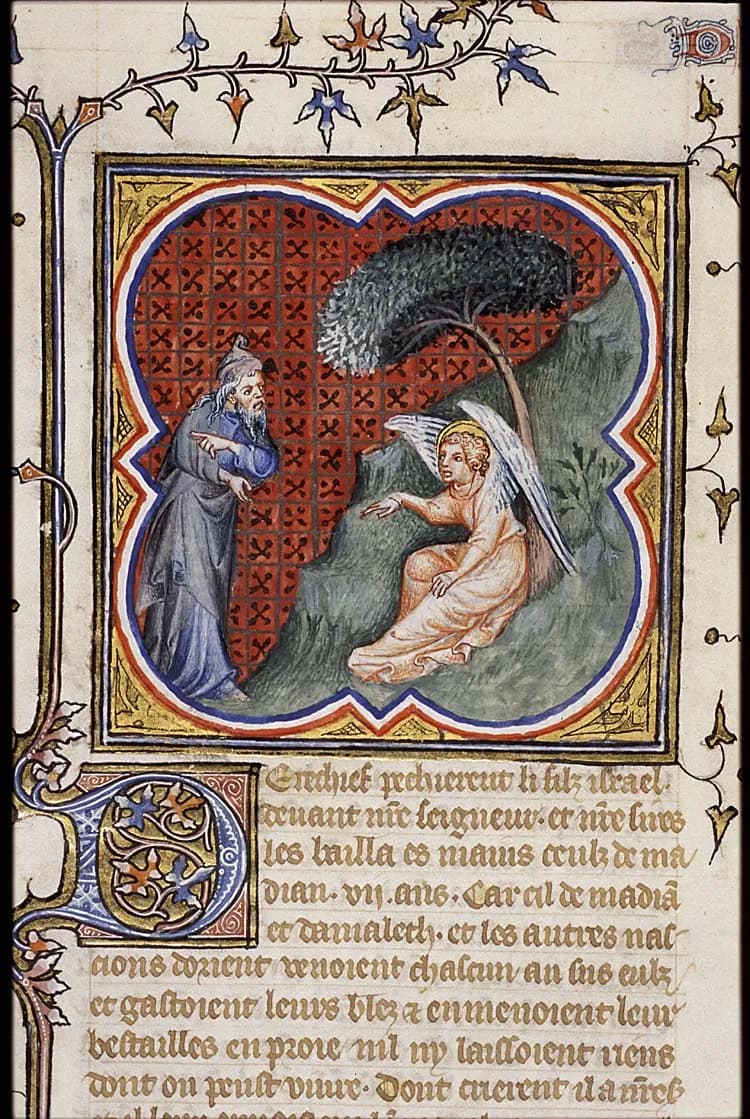 DErechief pechierent li filz israel.
deuant nr̃e seigneur. et nr̃e sires
les bailla es mains ceulz de ma
dian. vii. ans. Car cil de madiã
et damalech. et les autres nas
cions dorient venoient chascun an sus eulz
et gastoient leurs blez ⁊ enmenoient leur
bestailles en proie nil ny laissoient riens
dont on peust viure. Dont crierent il a nr̃es